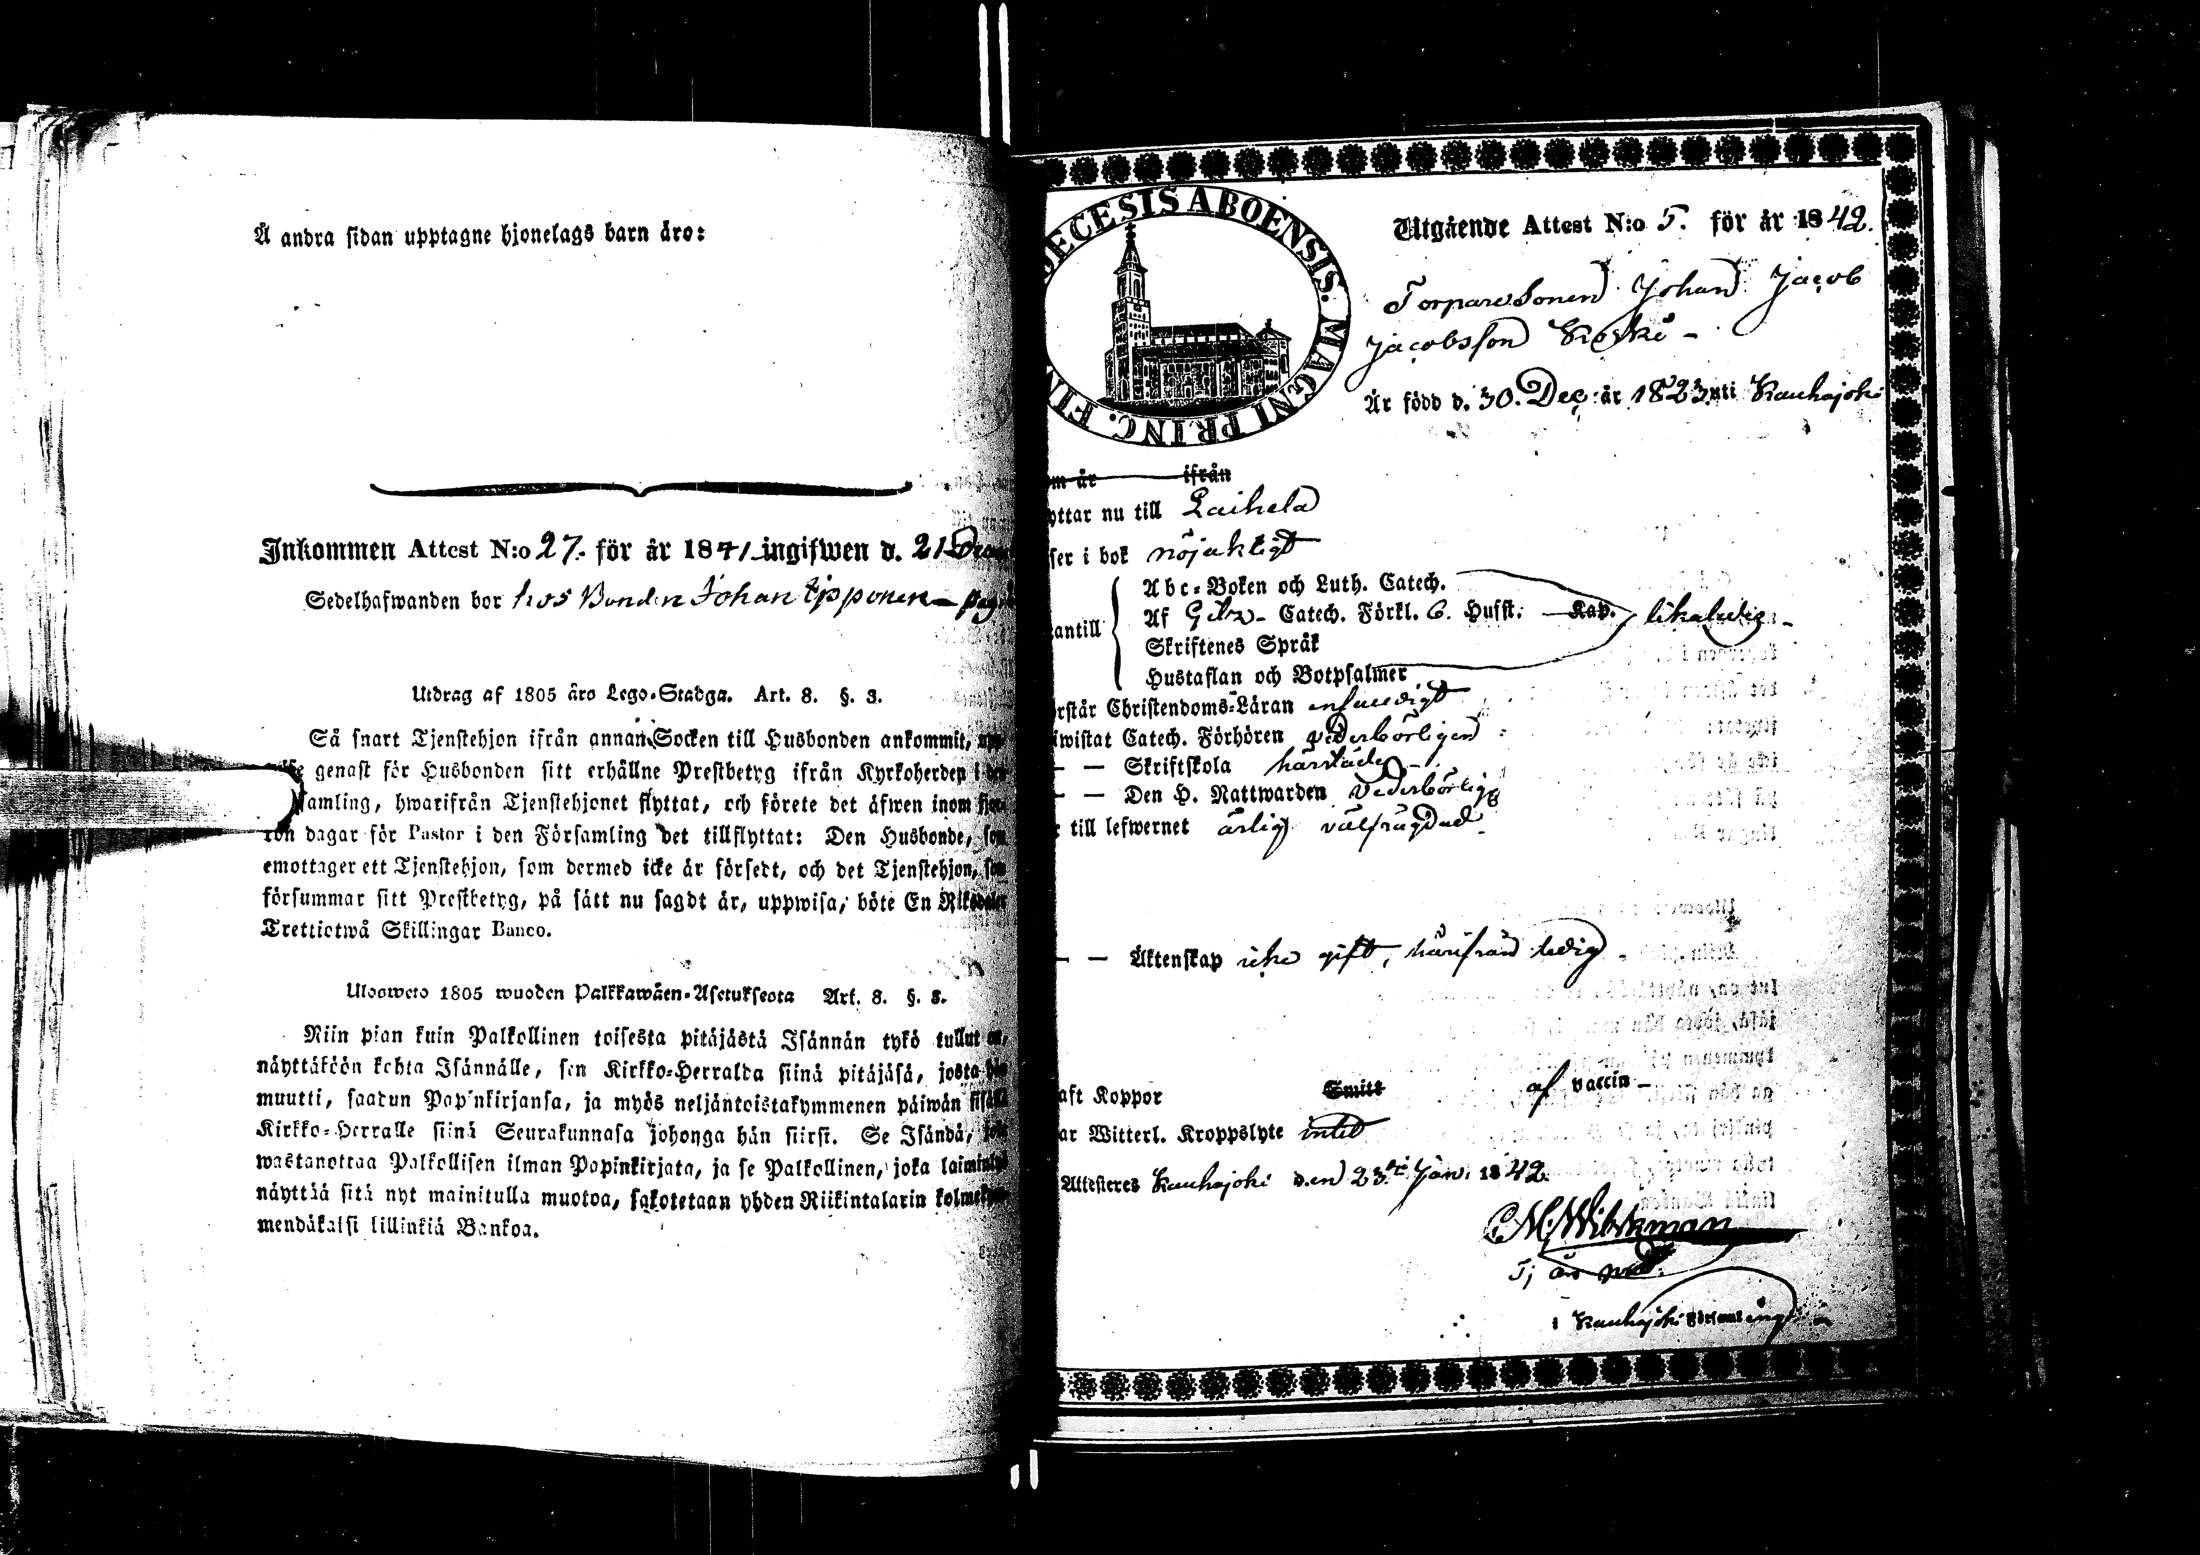 Å andra sidan upptagne hjonelags barn äro:
Inkommen Attest N:o 27. för år 1841 ingifwen d. 21
Sedelhafwanden bor hos Bonden Johan Ipponen
Utdrag af 1805 åro Lego-Stadga. Art. 8. §. 3.
Så snart Tjenstehjon ifrån annan Socken till Husbonden ankommit,
genast för Husbonden sitt erhållne Prestbetyg ifrån Kyrkoherden i
amling, hwarifrån Tjenstehjonet flyttat, och förete det äfwen inom
ton dagar för Pastor i den Församling det tillflyttat: Den Husbonde, som
emottager ett Tjenstehjon, som dermed icke är försedt, och det Tjenstehjon, som
försummar sitt Prestbetyg, på sätt nu sagdt är, uppwisa, böte En Riksdaler
Trettiotwå Skillingar Banco.
Ulosweto 1805 wuoden Palkkawäen-Asetuksesta Art. 8. §. 3.
Niin pian kuin Palkollinen toisesta pitäjästä Isännän tykö tullut on,
näyttäköön kohta Isännälle, sen Kirkko-Herralda siinä pitäjäsä, josta hän
muutti, saadun Papinkirjansa, ja myös neljäntoistakymmenen päiwän sisällä
Kirkko-Herralle siinä Seurakunnasa johonga hän siirsi. Se Isändä, joka
wastanottaa Palkollisen ilman Papinkirjata, ja se Palkollinen, joka laiminlyö
näyttää sitä nyt mainitulla muotoa, sakotetaan yhden Riikintalarin kolmekym-
mendäkaksi killinkiä Bankoa.
DECESIS ABOENSIS. MAGNI PRINC. FIN
Utgående Attest N:o 5. för år 1842.
Torparesonen Johan Jacob
Jacobsson Koski -
Är född d. 30. Dec. år 1823 uti Kauhajoki
om år ifrån
yttar nu till Laihela
ser i bok nöjaktigt
antill
Abc-Boken och Luth. Catech.
Af Catech. Förkl. 6. Husst. Kap. likaledes
Skriftenes Språk
Hustaflan och Botpsalmer
rstår Christendoms-Läran enfaldigt
iwistat Catech. Förhören vederbörligen
— — Skriftskola härstädes
— — Den H. Nattwarden vederbörlig
till lefwernet ärlig välfrägdad
— — Äktenskap icke gift, härifrån ledig
aft Koppor Smitt af vaccin
ar Witterl. Kroppslyte intet
Attesteres Kauhajoki den 23. Jan. 1842.
i Kauhajoki Församling